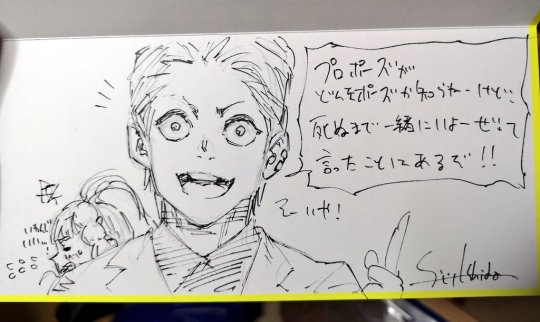 プロポーズが
どんなポーズか知らねーけど、
死ぬまで一緒にいよーぜ!て
言ったことにあるぞ!!
そーいや!
Sui Ishida